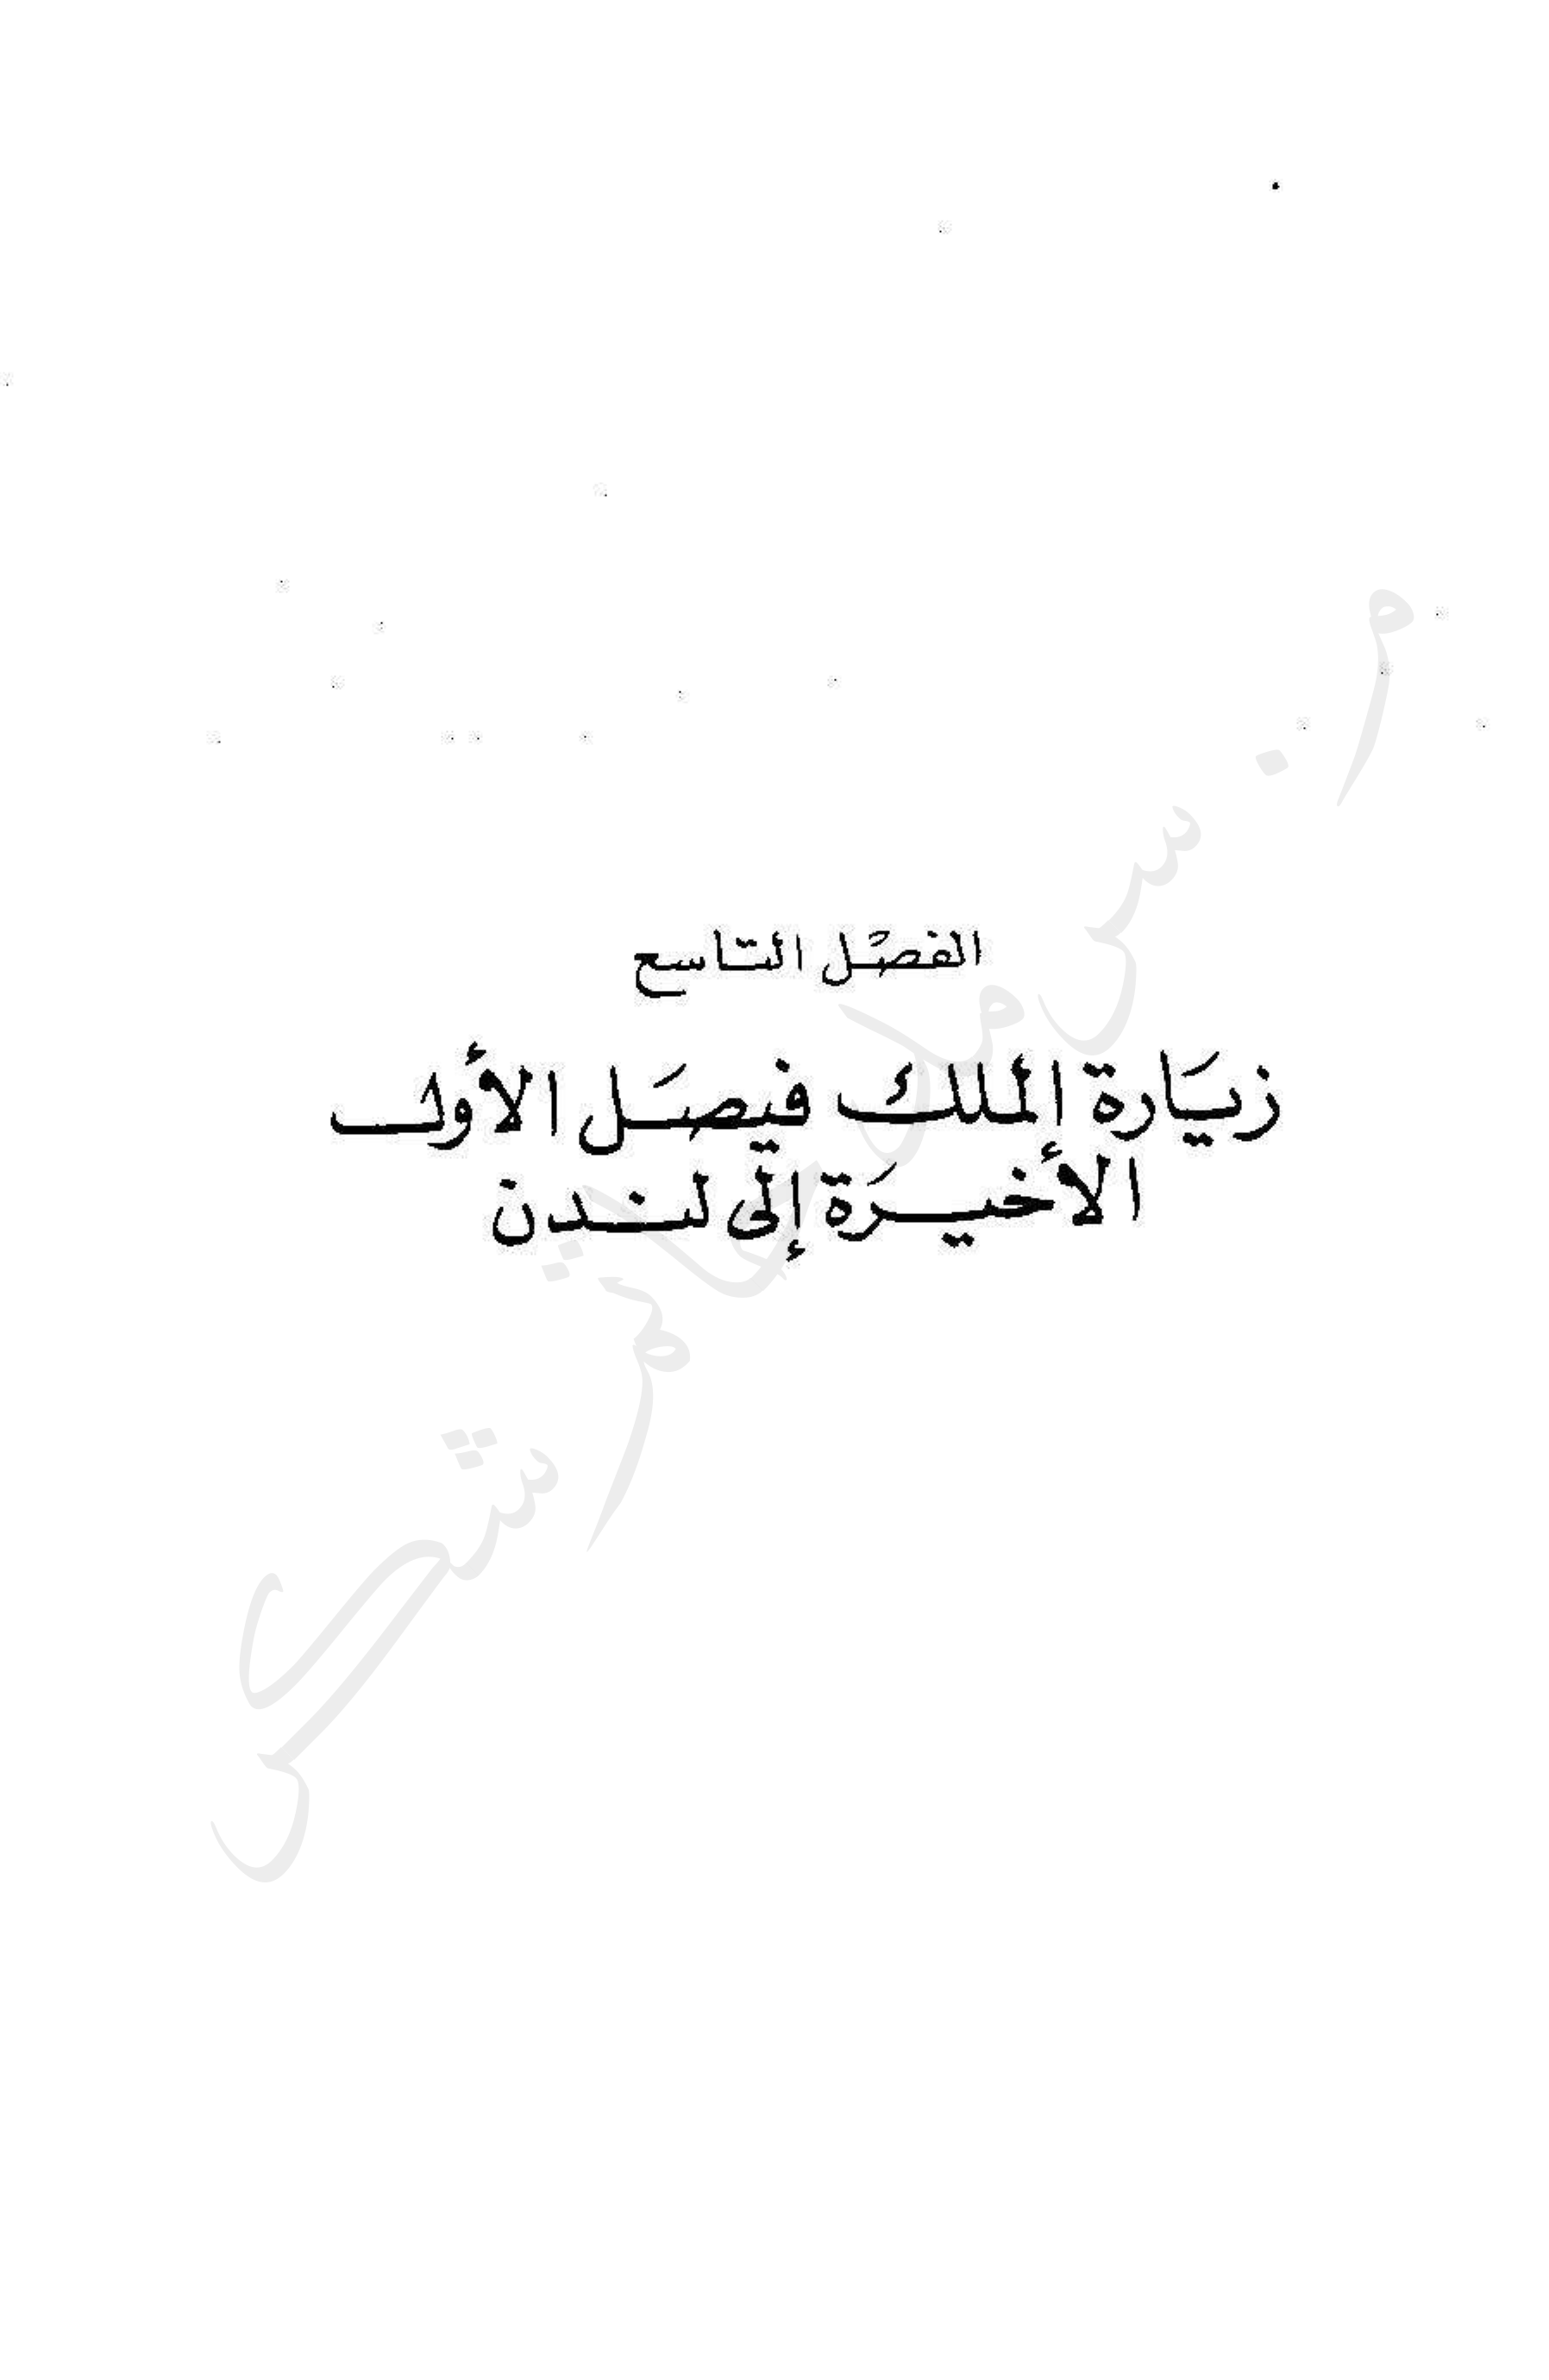 الفصل التاسع
زيَارة الملك فيصَل الأول
الأخيرَة إلى لندن